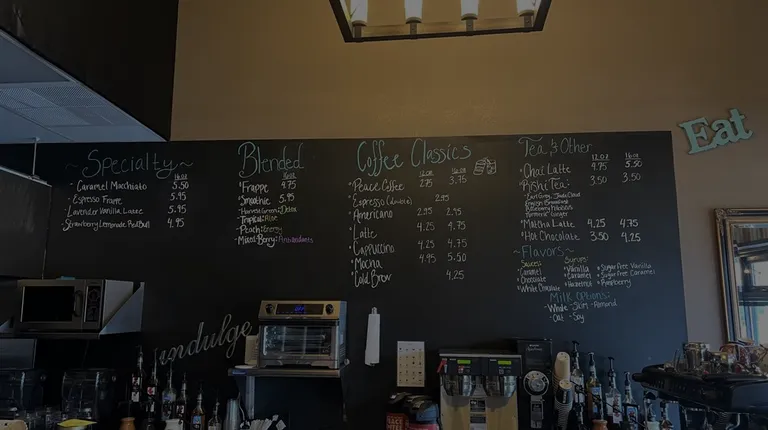 ~Specialty~
16oz
• Caramel Macchiato 5.50
• Espresso Frappe 5.95
Lavender Vanilla Latte 5.95
Strawberry Lemonade Red Bull 4.95
Blended
16oz
• Frappe 4.75
• Smoothie 5.95
• Harvest Greens: Detox
Tropical: Rise
• Peach: Energy
• Mixed Berry: Antioxidants
Coffee Classics
12oz 16oz
• Peace Coffee 2.75 3.75
• Espresso (double) 2.95
• Americano 2.95 2.95
• Latte 4.25 4.75
• Cappuccino 4.25 4.75
• Mocha 4.95 5.50
• Cold Brew 4.25
Tea & Other
12oz 16oz
• Chai Latte 4.75 5.50
• Rishi Tea: 3.50 3.50
English Breakfast
Turmeric Ginger
• Matcha Latte 4.25 4.75
• Hot Chocolate 3.50 4.25
~Flavors~
Sauces: Syrups:
Caramel • Vanilla • Sugar Free Vanilla
Chocolate • Caramel • Sugar Free Caramel
White Chocolate • Hazelnut • Raspberry
Milk Options:
• Whole • Skim • Almond
• Oat • Soy
Eat
indulge